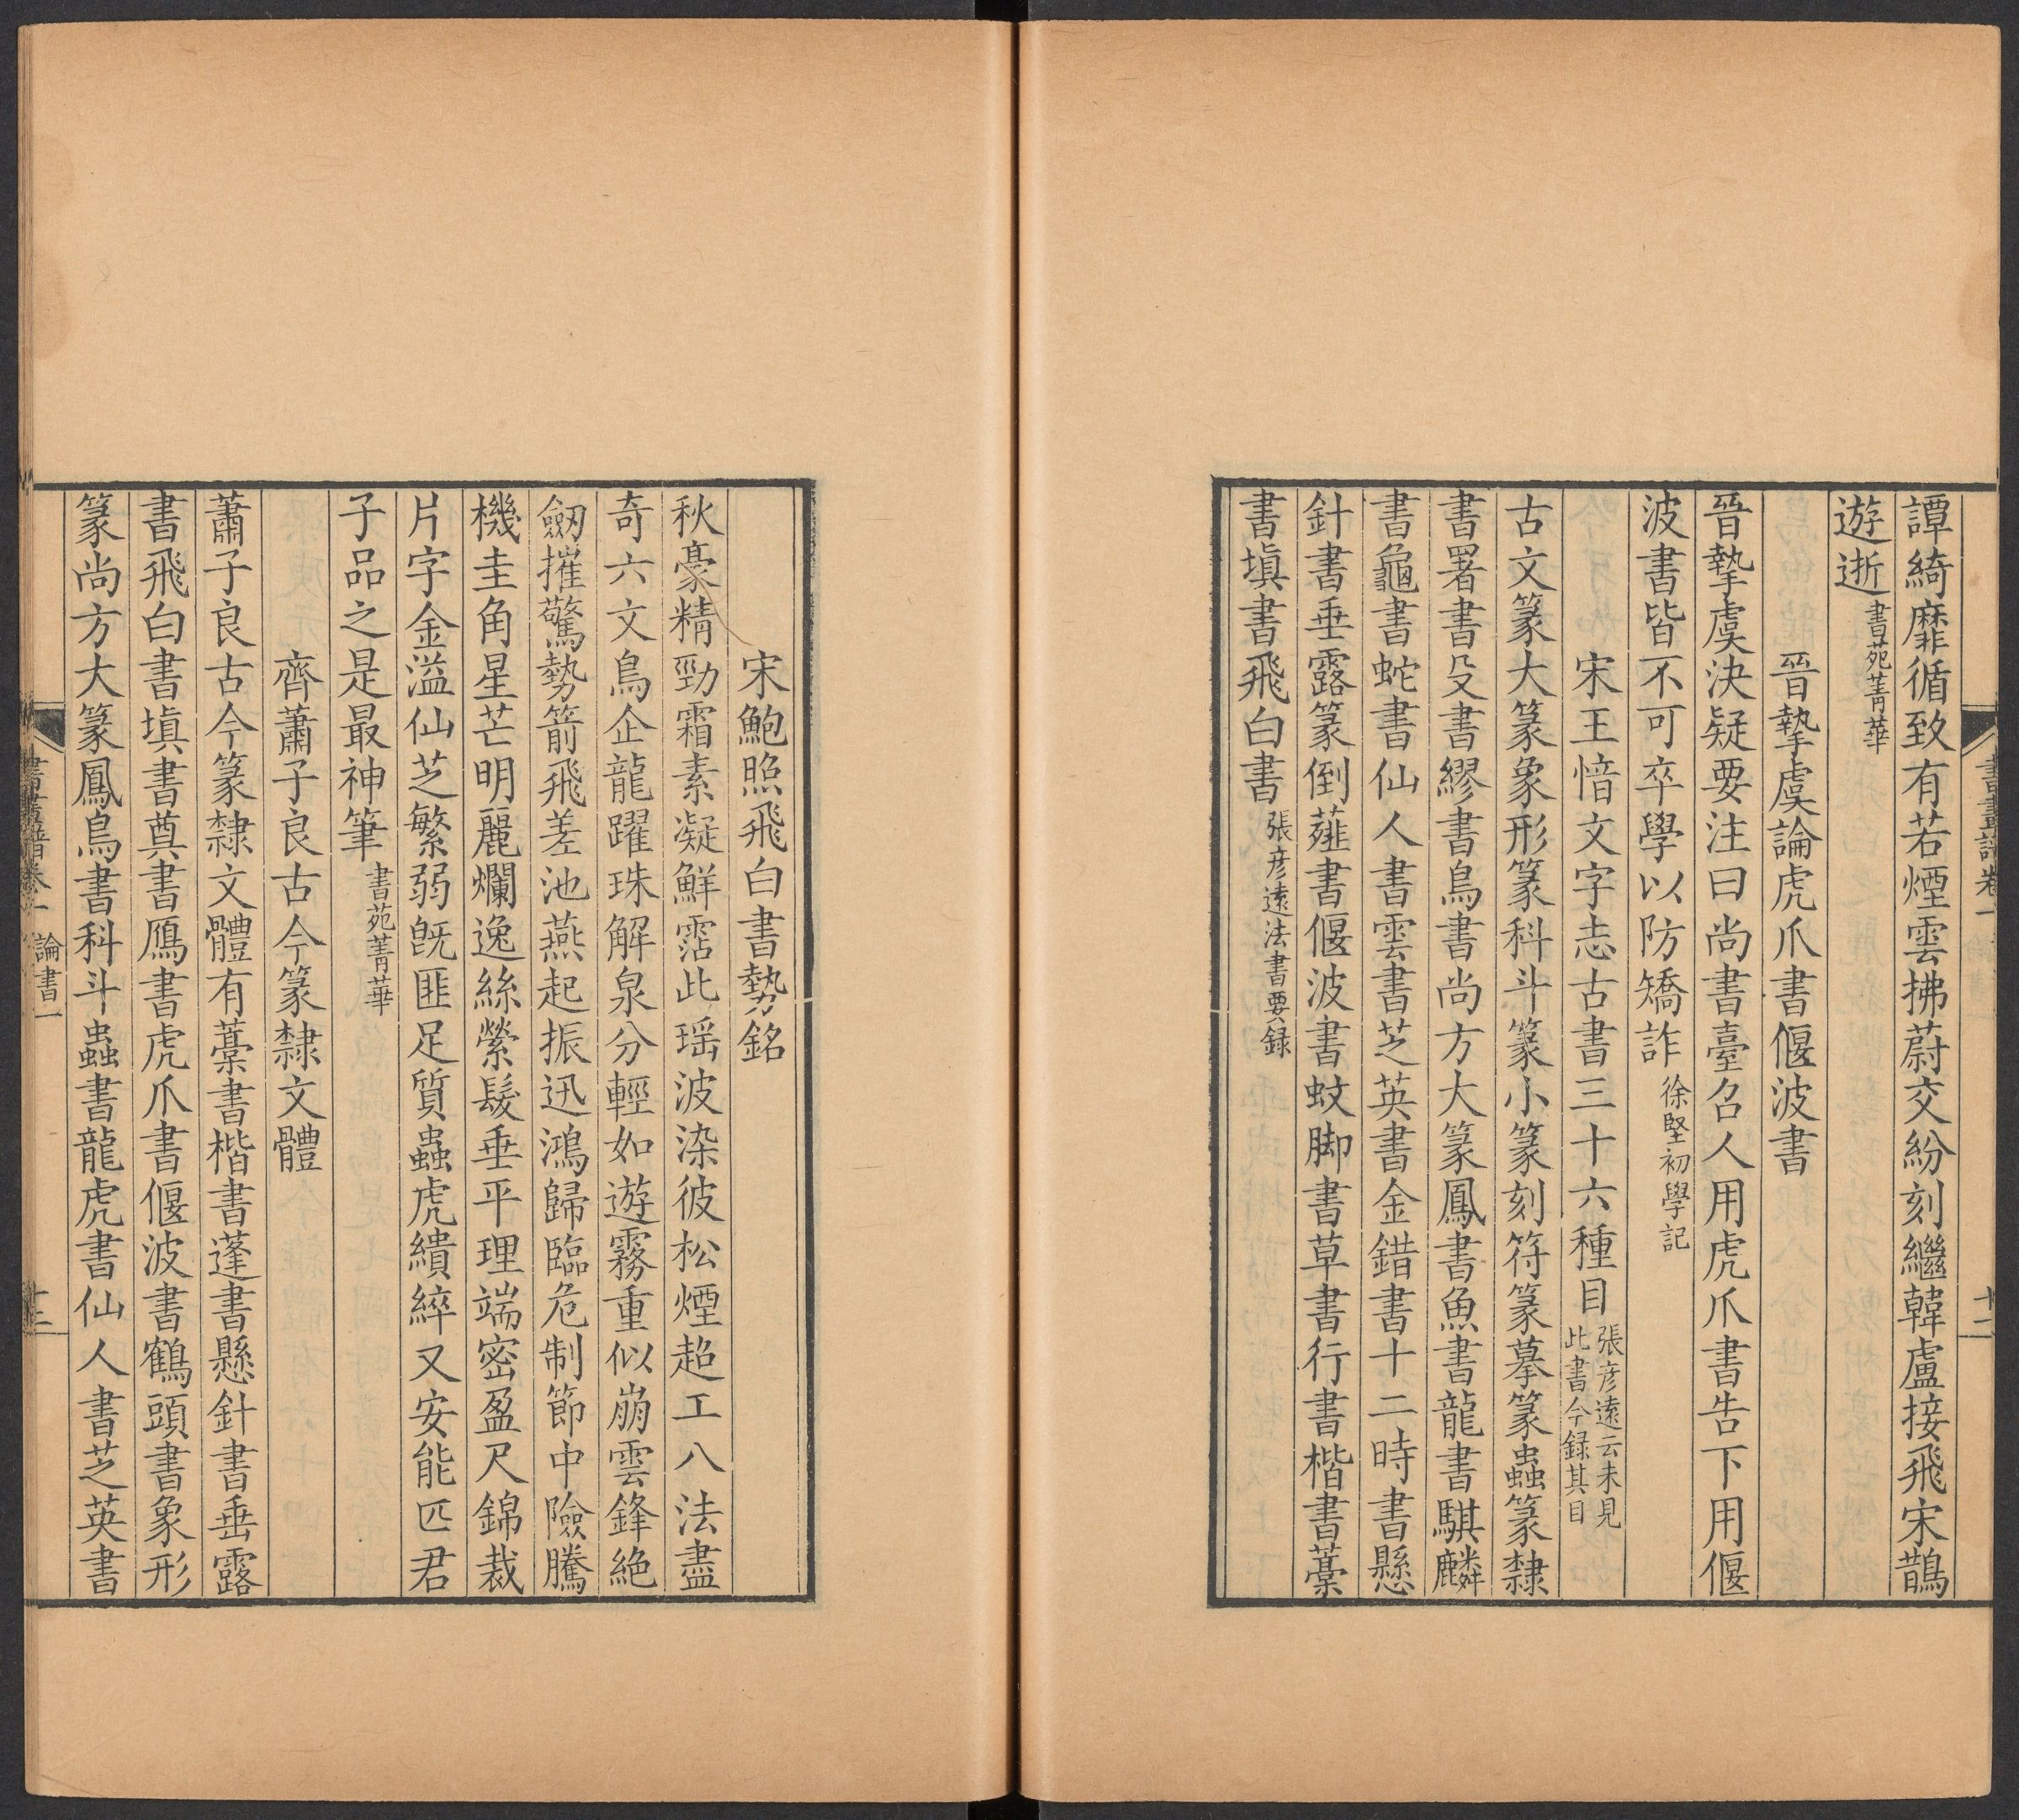 譚綺靡循致有若煙雲拂蔚交紛刻繼韓盧接飛宋鵲
遊逝書苑菁華
晉摯虞論虎爪書偃波書
晉摯虞決疑要注曰尚書臺召人用虎爪書告下用偃
波書皆不可卒學以防矯詐徐堅初學記
宋王愔文字志古書三十六種目張彦遠云未見此書今録其目
古文篆大篆象形篆科斗篆小篆刻符篆摹篆蟲篆隸
書署書殳書繆書鳥書尚方大篆鳳書魚書龍書騏麟
書龜書蛇書仙人書雲書芝英書金錯書十二時書懸
針書垂露篆倒薤書偃波書蚊脚書草書行書楷書藁
書塡書飛白書張彦遠法書要録
宋鮑照飛白書勢銘
秋毫精勁霜素凝鮮霑此瑶波染彼松煙超工八法盡
奇六文鳥企龍躍珠解泉分輕如遊霧重似崩雲鋒絶
劒摧驚勢箭飛差池燕起振迅鴻歸臨危制節中險騰
機圭角星芒明麗爛逸絲縈髮垂平理端密盈尺錦裁
片字金溢仙芝繁弱旣匪足質蟲虎繢綷又安能匹君
子品之是最神筆書苑菁華
齊蕭子良古今篆隸文體
蕭子良古今篆隸文體有藁書楷書蓬書懸針書垂露
書飛白書塡書奠書鴈書虎爪書偃波書鶴頭書象形
篆尚方大篆鳳鳥書科斗蟲書龍虎書仙人書芝英書
論書一